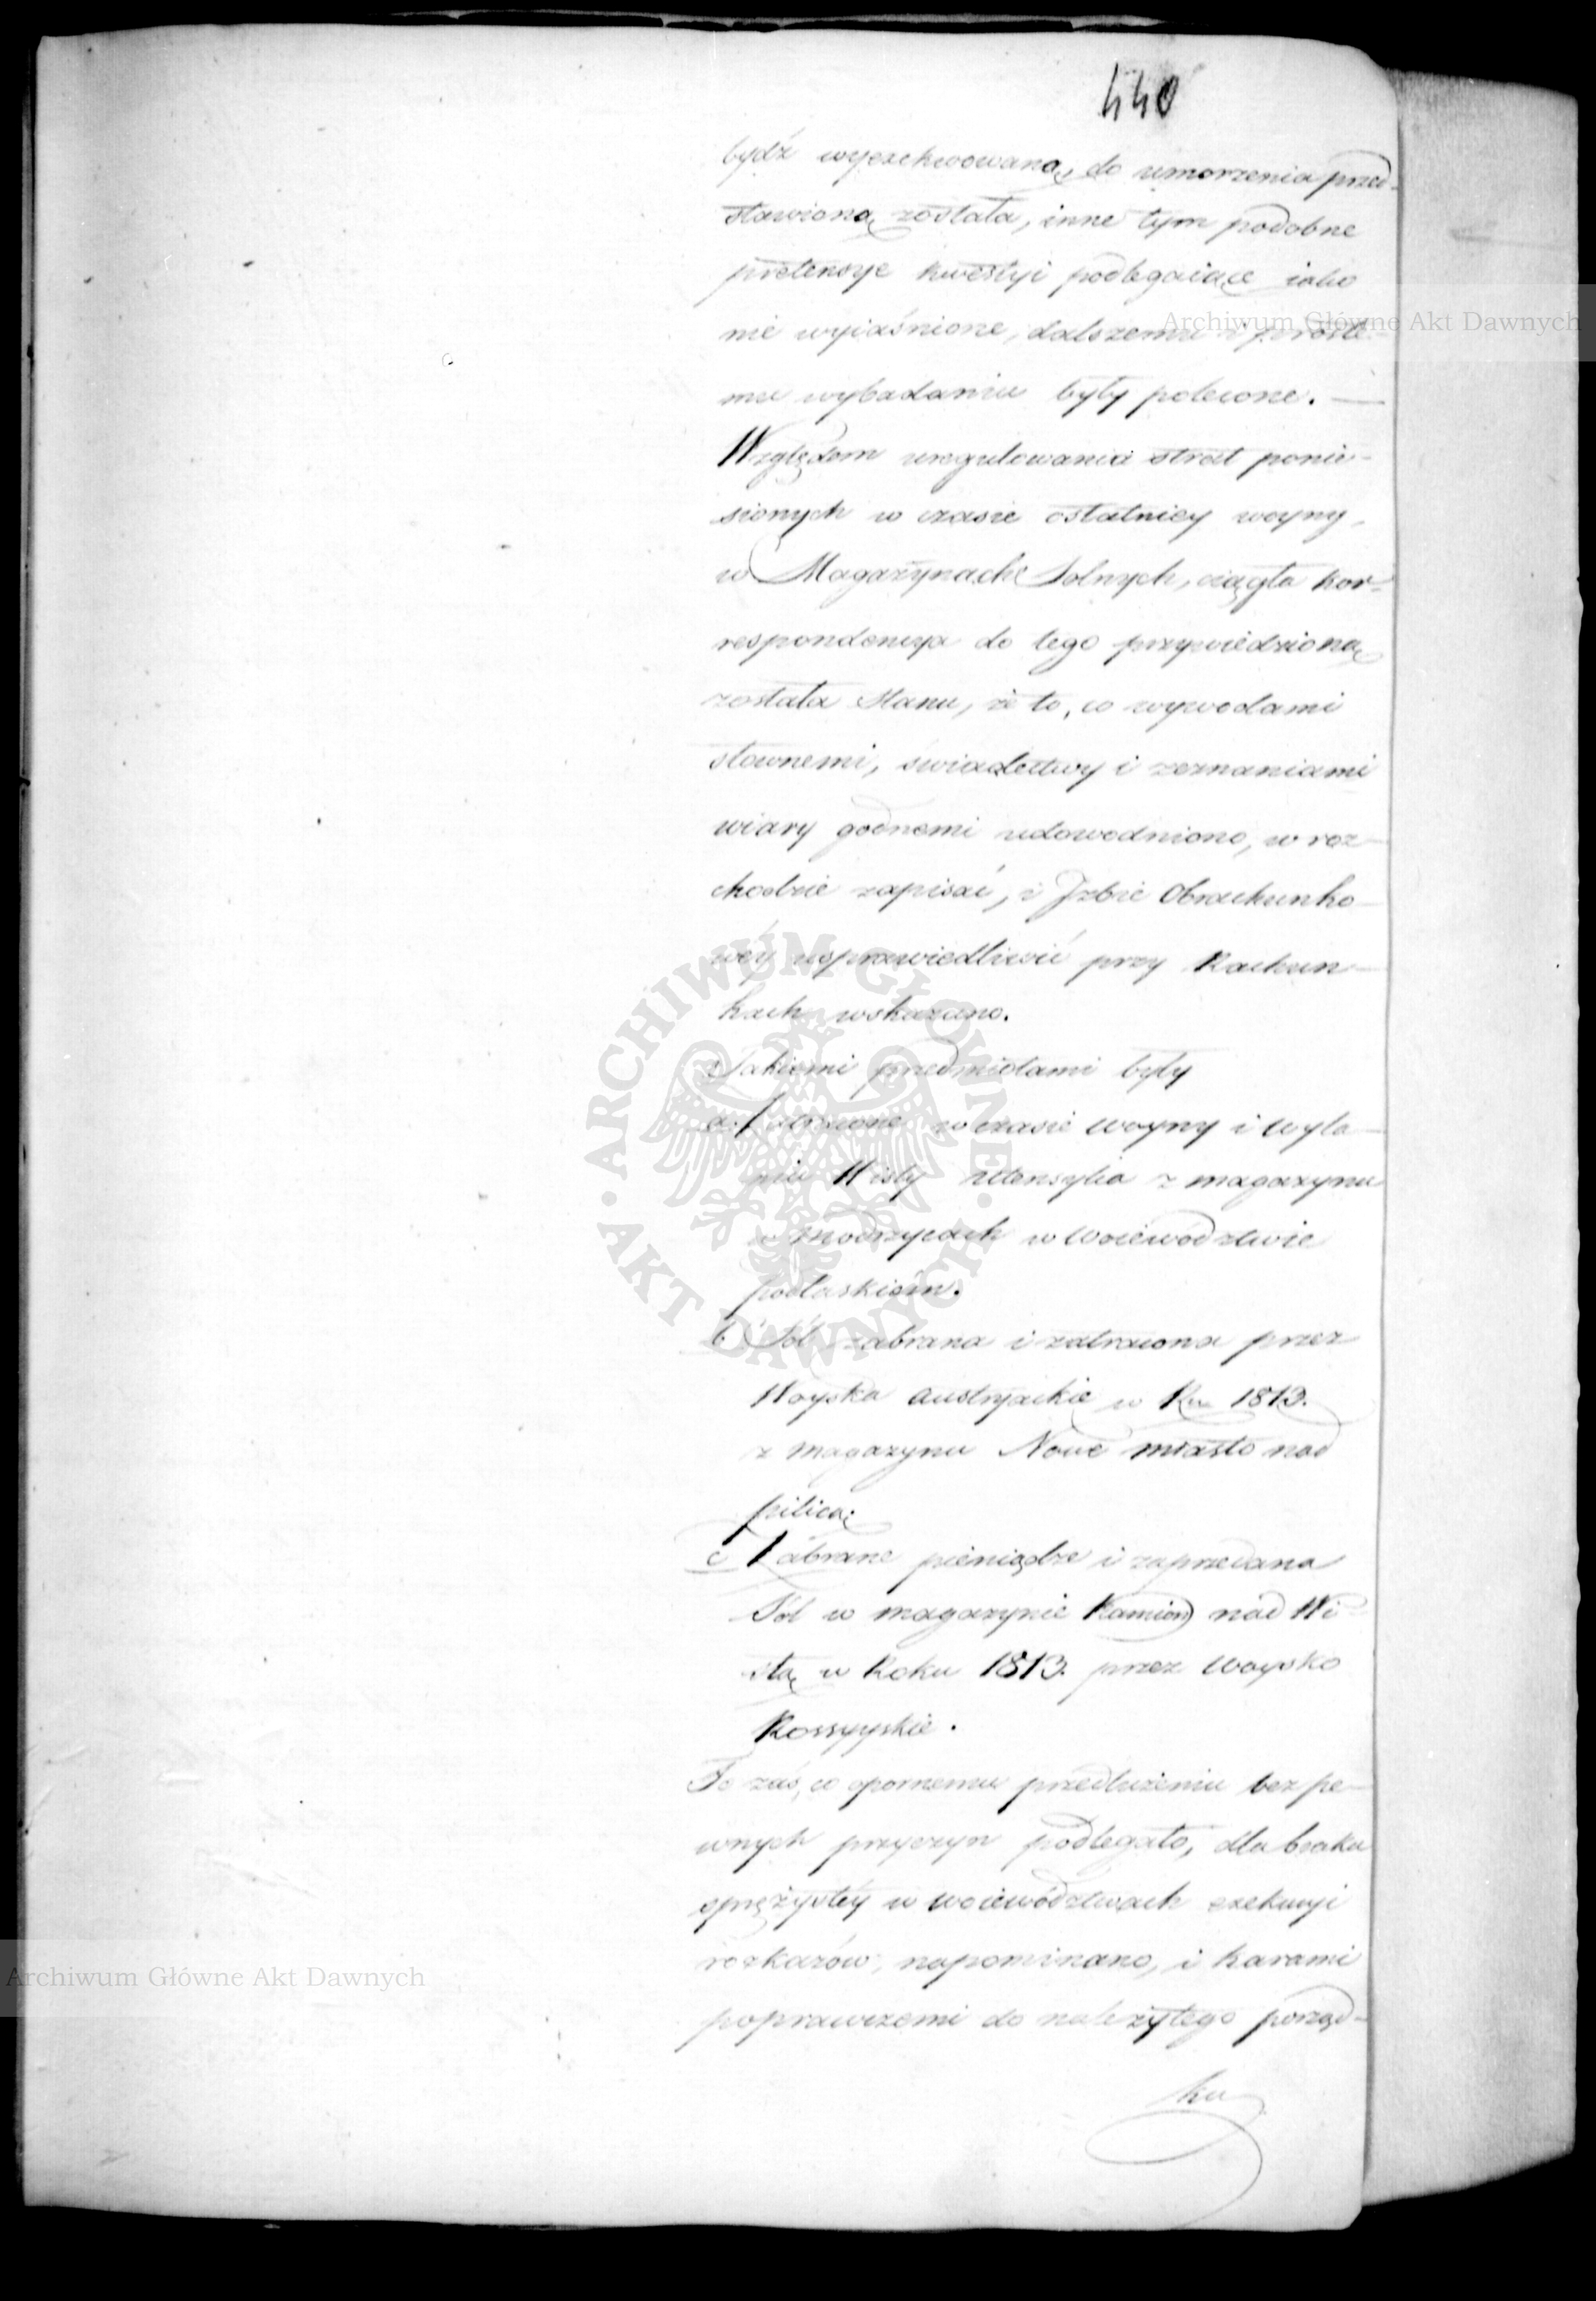 440
bydź wyexekwowaną, do umorzenia przed-
stawioną została, inne tym podobne
pretensye kwestyi podlegaiące iako
nie wyiaśnione, dalszemu i proste-
mu wybadaniu były polecone. —
Względem uregulowania strat ponie-
sionych w czasie ostatniey woyny,
w Magazynach Solnych, ciągła kor-
respondencya do tego przywiedzioną
została Stanu, że to, co wywodami
słownemi, świadectwy i zeznaniami
wiary godnemi udowodniono, w roz-
chodzie zapisać, i Jzbie Obrachunko-
wéy usprawiedliwić przy Rachun-
kach wskazano.
Jakiemi przedmiotami były
a/ utracone w czasie woyny i wyla-
niu Wisły utensylia z magazynu
w Modrzycach w Woiewództwie
podlaskiém.
b/ Sól zabrana i zatracona przez
Woyska Austryackie w Ru 1813.
z magazynu Nowe miasto nad
pilicą.
c/ Zabrane pieniądze i zaprzedana
Sól w magazynie Kamion nad Wi-
słą w Roku 1813. przez Woysko
Rossyyskie.
To zaś, co opornemu przedłużeniu bez pe-
wnych przyczyn podlegało, dla braku
sprężystéy w woiewództwach exekucyi
rozkazów, napominano, i karami
poprawczemi do należytego porząd-
ku
Archiwum Główne Akt Dawnych
ARCHIWUM GŁÓWNE AKT DAWNYCH
Archiwum Główne Akt Dawnych